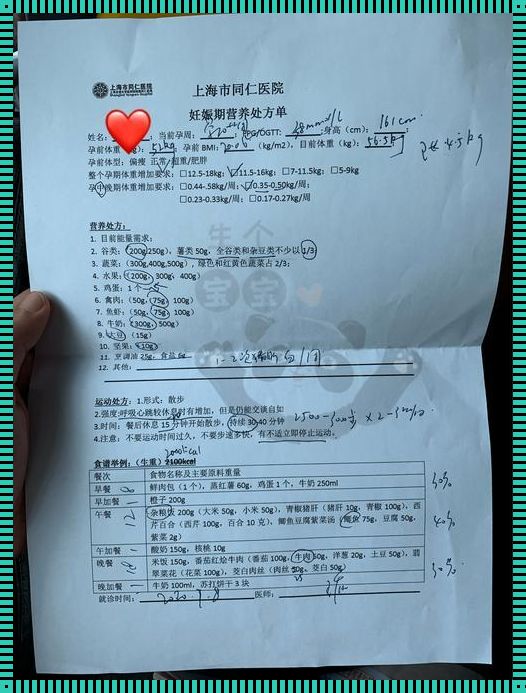 上海市同仁医院
上海市同仁医院
妊娠期营养处方单
姓名: 当前孕周: FBG/OGTT: 4.8mmol/L 身高(cm): 161cm
孕前体重(kg): 51kg 孕前 BMI: (kg/m2), 目前体重(kg): 56.5kg
孕前体型: 偏瘦 正常/超重/肥胖
整个孕期体重增加要求: □12.5-18kg; ☑11.5-16kg; □7-11.5kg; □5-9kg
孕中晚期体重增加要求: □0.44-.58kg/周; ☑0.35-0.50kg/周;
□0.23-0.33kg/周; □0.17-0.27kg/周
营养处方:
1. 目前能量需求:
2. 谷类: (200g,250g), 薯类 50g, 全谷类和杂豆类不少以 1/3
3. 蔬菜: (300g,400g,500g), 绿色和红黄色蔬菜占 2/3;
4. 水果: (200g, 300g, 400g)
5. 鸡蛋: 1 个
6. 禽肉: (50g, 75g, 100g)
7. 鱼虾: (50g, 75g, 100g)
8. 牛奶: (300g, 500g)
9. 大豆 (15g)
10. 坚果: (10g)
11. 烹调油 25g, 食盐 6g
12. 其他: 1-2次 /周
生个
宝宝
运动处方: 1.形式: 散步
2.强度:呼吸心跳较休息时有增加, 但是仍能交谈自如
3.时间: 餐后休息 15 分钟开始散步, 持续 30-40 分钟
4.注意: 不要运动时间过久, 不要步速多快, 有不适立即停止运动。
食谱举例: (生重) 2100kcal
餐次 食物名称及主要原料重量
早餐 鲜肉包(1个), 蒸红薯 60g, 鸡蛋 1 个, 牛奶 250ml 30%
早加餐 橙子 200g
午餐 杂粮饭 200g (大米 50g, 小米 50g), 青椒猪肝 (猪肝 10g, 青椒 100g), 西
芹百合 (西芹 100g, 百合 10 克), 鲫鱼豆腐紫菜汤 (鲫鱼 75g, 豆腐 50g, 40%
紫菜 2g)
午加餐 酸奶 150g, 核桃 10g
晚餐 米饭 150g, 番茄红烩牛肉 (番茄 100g, 牛肉 50g, 洋葱 20g, 土豆 50g), 翡 30%
翠菜花 (花菜 100g), 茭白肉丝 (肉丝 50g, 茭白 50g)
晚加餐 牛奶 100ml, 苏打饼干 3 块
就诊时间: 2020.9.8 医师: